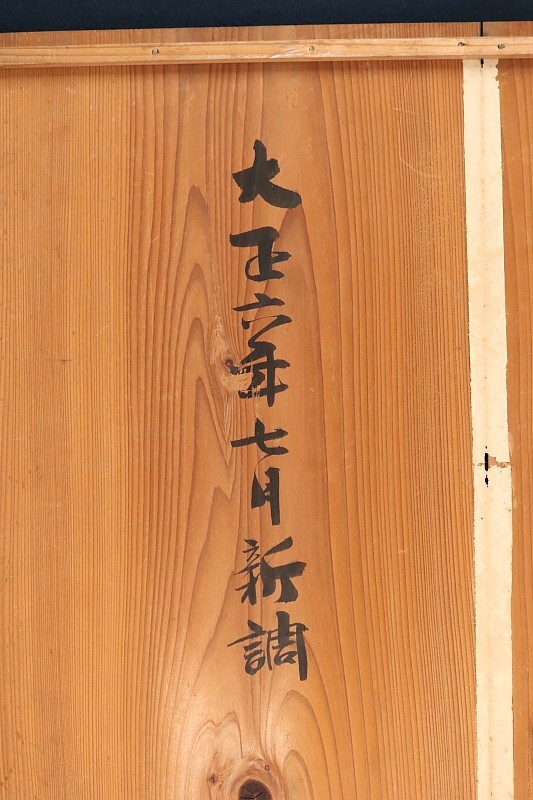 大正六年七月新調